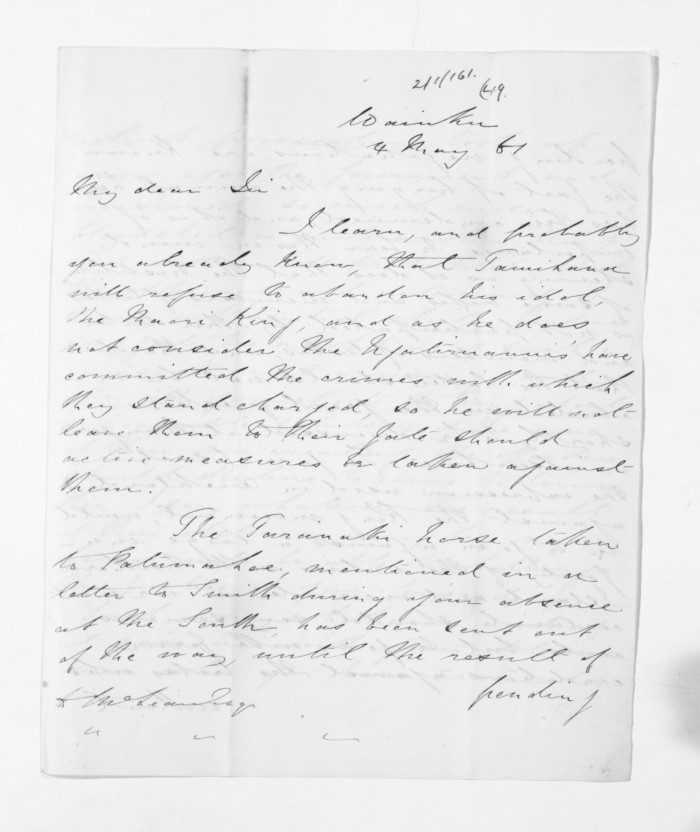 21/1/161. (49.
Waiuku
4 May 61
My dear Sir
I learn, and probably
you already know, that Tamihana
will refuse to abandon his idol,
the Maori King, and as he does
not consider the Ngatimaniu's have
committed the crimes with which
they stand charged, so he will not
leave them to their fate should
active measures be taken against
them.
The Taranaki horse taken
to Patumahoe, mentioned in a
letter to Smith during your absence
at the South, has been sent out
of the way, until the result of
pending
McLean Esq
" " "